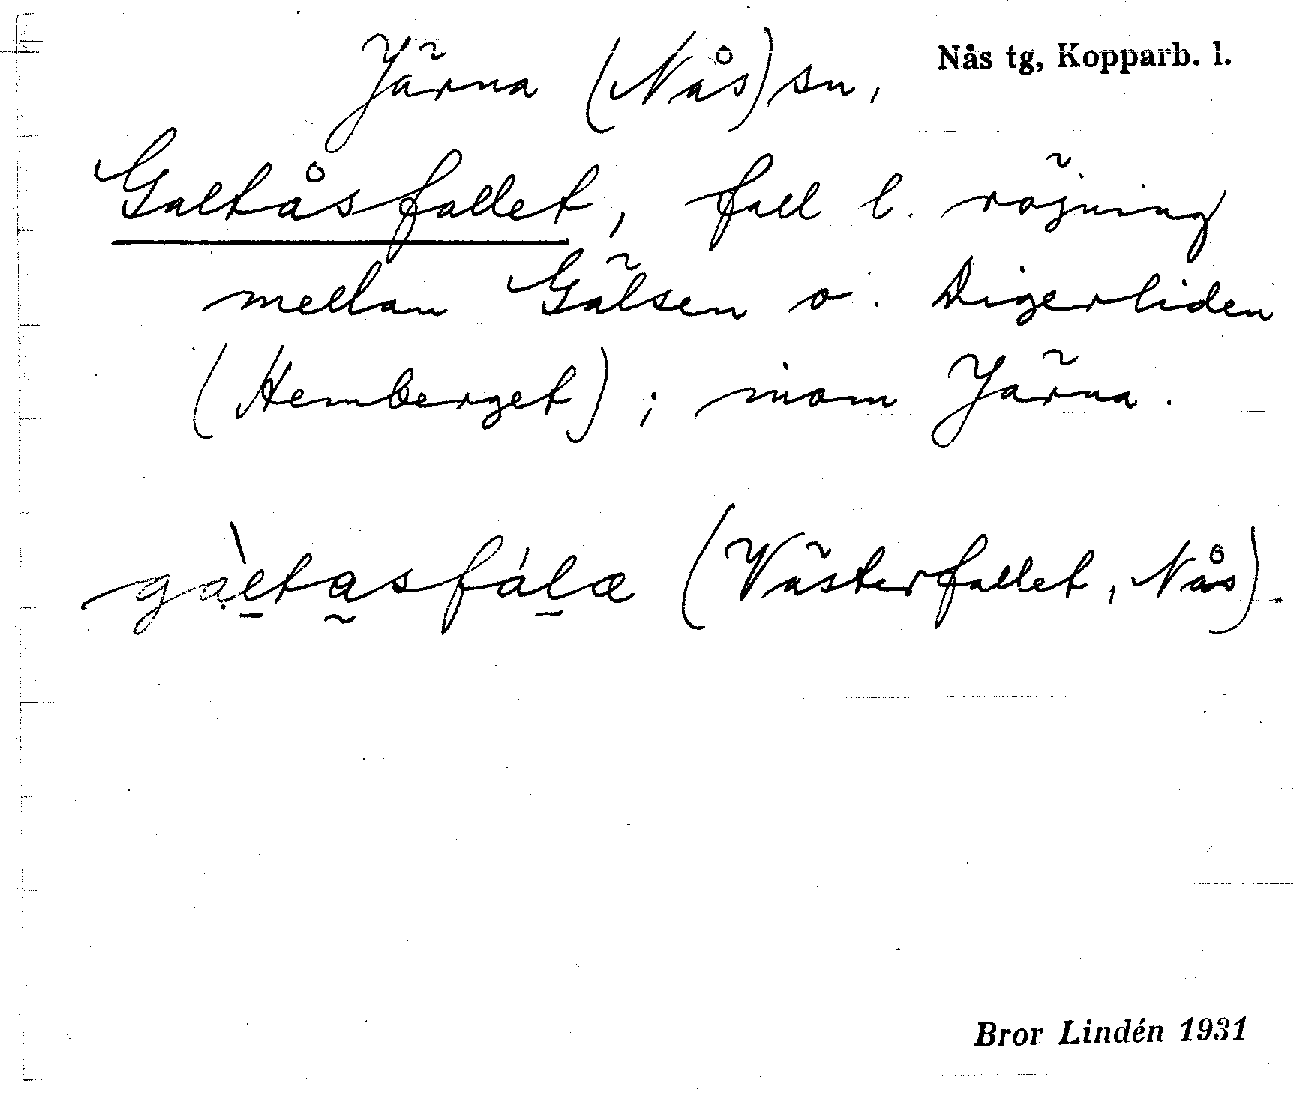 Järna (Nås) sn, Nås tg, Kopparb. l.
Galtåsfallet, fall l. röjning
mellan Gälsen o. Digerliden
(Hemberget); inom Järna.
gàltasfálæ (Västerfallet, Nås).
Bror Lindén 1931